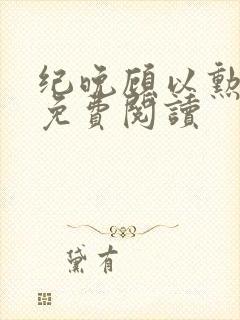 纪晚顾以勳
免費閱讀
黛有